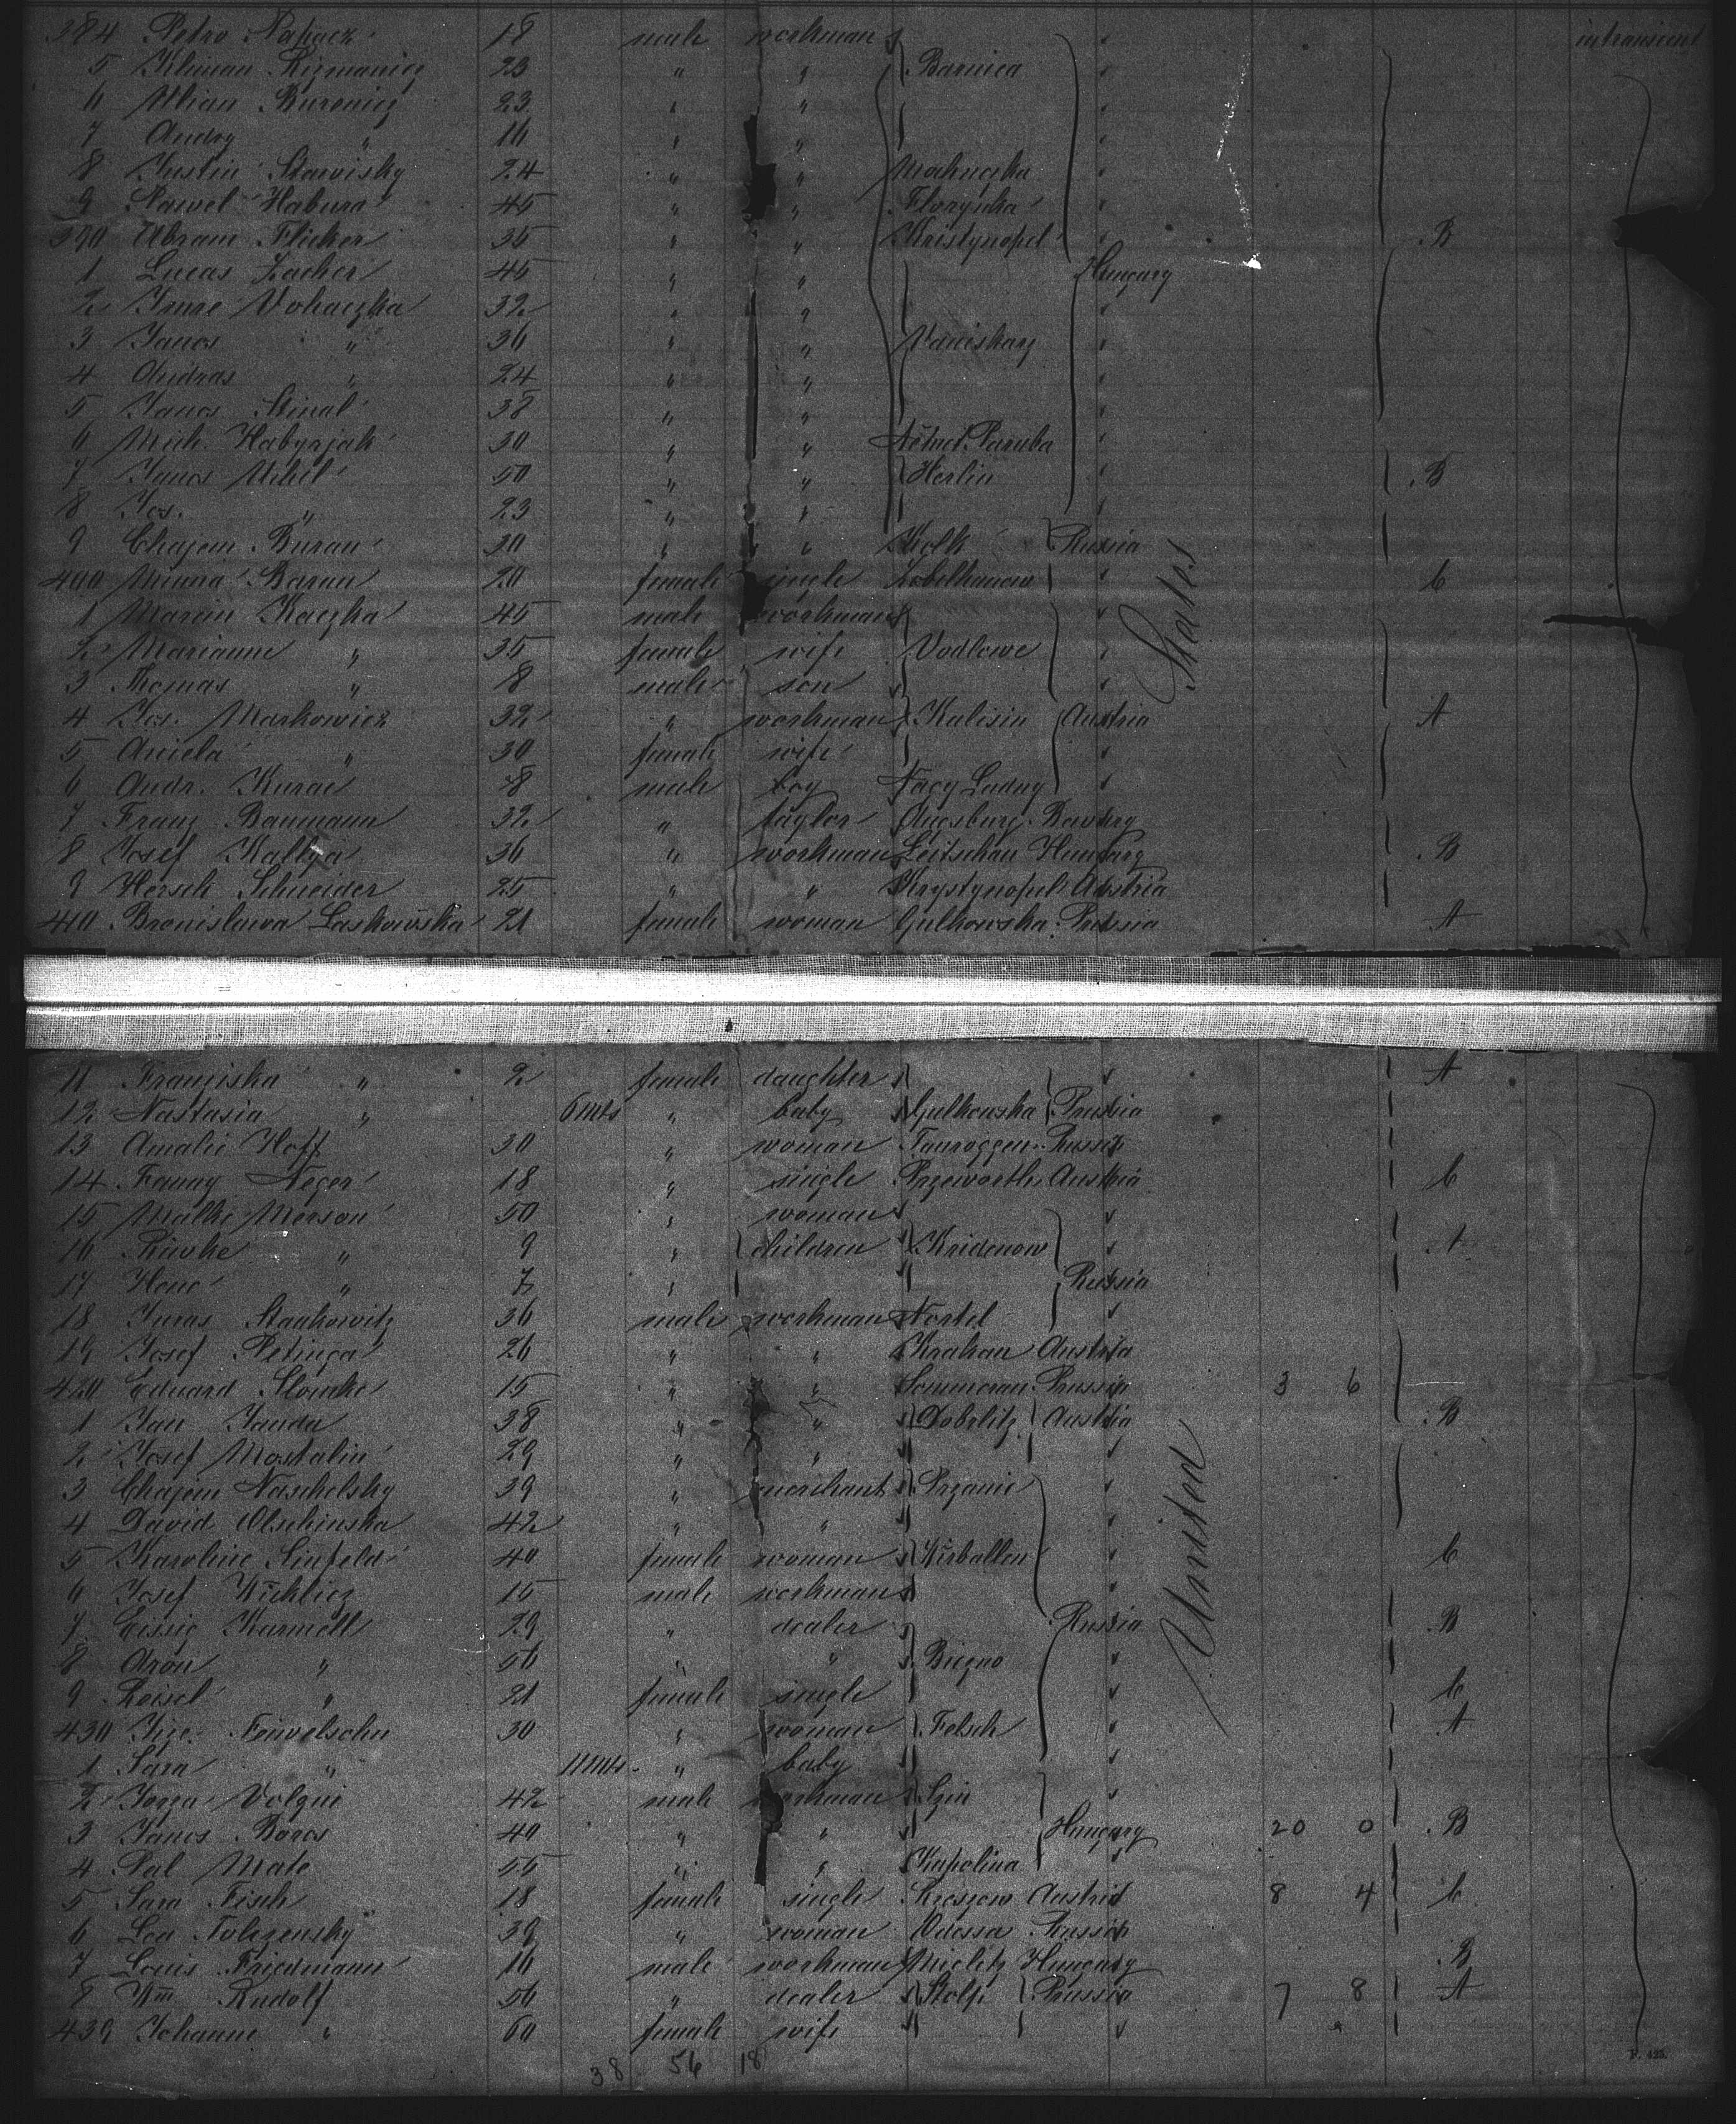 384 Petro Napacz 18 male workman intransient
5 Kliman Rizmanicz 23 " " Barnica
6 Ulian Burenicz 23 " "
7 Andry " 16 " "
8 Justin Stawisky 24 " " Mahnczka
9 Pawel Habura 45 " " Florynka
390 Abram Flicker 35 " " Kristynopel B
1 Lucas Zacher 45 " " Hungary
2 Imre Vohaczka 32 " "
3 Janos " 36 " "
4 Andras " 24 " "
5 Janos Stinal 38 " "
6 Mich. Habyrjak 30 " " Német Poruba
7 Janos Mihil 50 " " Herlin B
8 Jos. " 23 " "
9 Chajem Buran 30 " " Wolk Russia
400 Minna Baran 20 female single C
1 Marcin Kaczka 45 male workman
2 Marianne " 35 female wife Vodlowe
3 Thomas " 8 male son
States
4 Jos. Markowicz 32 " workman Kalisin Austria A
5 Aniela " 30 female wife
6 Andr. Kurac 8 male boy Nagy Ladny
7 Franz Baumann 32 " taylor Augsburg Bavary
8 Josef Kallya 36 " workman Leitschau Hungary B
9 Hersch Schneider 25 " " Krystynopel Austria
410 Bronislawa Laskowska 21 female woman Gulkowska Prussia A
11 Franziska " 2 female daughter A
12 Nastasia " 6 mts " baby Gulkowska Prussia
13 Amalie Hoff 30 " woman Tauroggen Russia
14 Fanny Neger 18 " single Przeworth Austria C
15 Malke Merson 50 " woman
16 Riwke " 9 " children Kridenow A
17 Hene " 7 " Russia
18 Juras Stankowitz 36 male workman Nortel
19 Josef Petinga 26 " " Krakau Austria
420 Eduard Slomke 15 " " Sommerau Prussia 3 6
1 Jan Janda 38 " " Dobrlitz Austria B
2 Josef Mostalin 29 " "
3 Chajem Naschelsky 39 " merchant Przanic
4 David Olschinska 42 " "
United
5 Karoline Sinfeld 40 female woman Wirballen C
6 Josef Wichlicz 15 male workman
7 Eissig Karmell 29 " dealer Russia B
8 Aron " 56 " " Biezno
9 Leisel " 21 female single C
430 Feiwelsohn 30 " woman Felsch A
1 Sara " 11 mts " baby
2 Jozsa Volgui 42 male workman Szin
3 Janos Boros 40 " " Hungary 20 0 B
4 Pal Mate 55 " " Kapolina
5 Sara Fisch 18 female single Rzeszow Austria 8 4 C
6 Lea Tolezensky 39 " woman Odessa Russia
7 Louis Friedmann 16 male workman Mielitz Hungary B
8 Wm Rudolf 56 " dealer Stolp Prussia 7 8 A
439 Johanne " 60 female wife
38 56 18